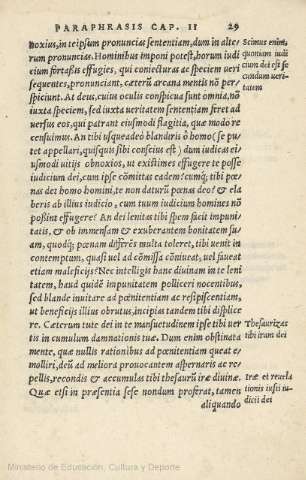 PARAPHRASIS CAP. II 29
noxius, in teipsum pronuncias sententiam, dum in alte-
rum pronuncias. Hominibus imponi potest, horum iudi
cium fortassis effugies, qui coniecturas ac speciem veri
sequentes, pronunciant, cæterũ arcana mentis nõ per-
spiciunt. At deus, cuius oculis conspicua sunt omnia, nõ
iuxta speciem, sed iuxta veritatem sententiam feret ad
versus eos, qui patrant eiusmodi flagitia, quæ modo re
censuimus. An tibi usqueadeo blandiris ô homo (se pu
tet appellari, quisquis sibi conscius est) dum iudicas ei
usmodi vitijs obnoxios, ut existimes effugere te posse
iudicium dei, cum ipse cõmittas eadem? cumq; tibi pœ
nas det homo homini, te non daturũ pœnas deo? & ela
beris ab illius iudicio, cum tuum iudicium homines nõ
poßint effugere? An dei lenitas tibi spem facit impuni
tatis, & ob immensam & exuberantem bonitatem su-
am, quodq; pœnam differẽs multa toleret, tibi uenit in
contemptum, quasi uel ad cõmissa cõniueat, uel faueat
etiam maleficijs? Nec intelligis hanc diuinam in te leni
tatem, haud quidẽ impunitatem polliceri nocentibus,
sed blande inuitare ad pœnitentiam ac resipiscentiam,
ut beneficijs illius obrutus, incipias tandem tibi displice
re. Cæterum tute dei in te mansuetudinem ipse tibi ver
tis in cumulum damnationis tuæ. Dum enim obstinata
mente, quæ nullis rationibus ad pœnitentiam queat e-
molliri, deũ ad meliora prouocantem aspernaris ac re-
pellis, recondis & accumulas tibi thesaurũ iræ diuinæ.
Quæ etsi in præsentia sese nondum proferat, tamen
aliquando
Scimus enim,
quoniam iudi
cium dei est se
cundum ueri-
tatem
Thesaurizas
tibi iram dei
iræ et reuela
tionis iusti iu
dicii dei
Ministerio de Educación, Cultura y Deporte